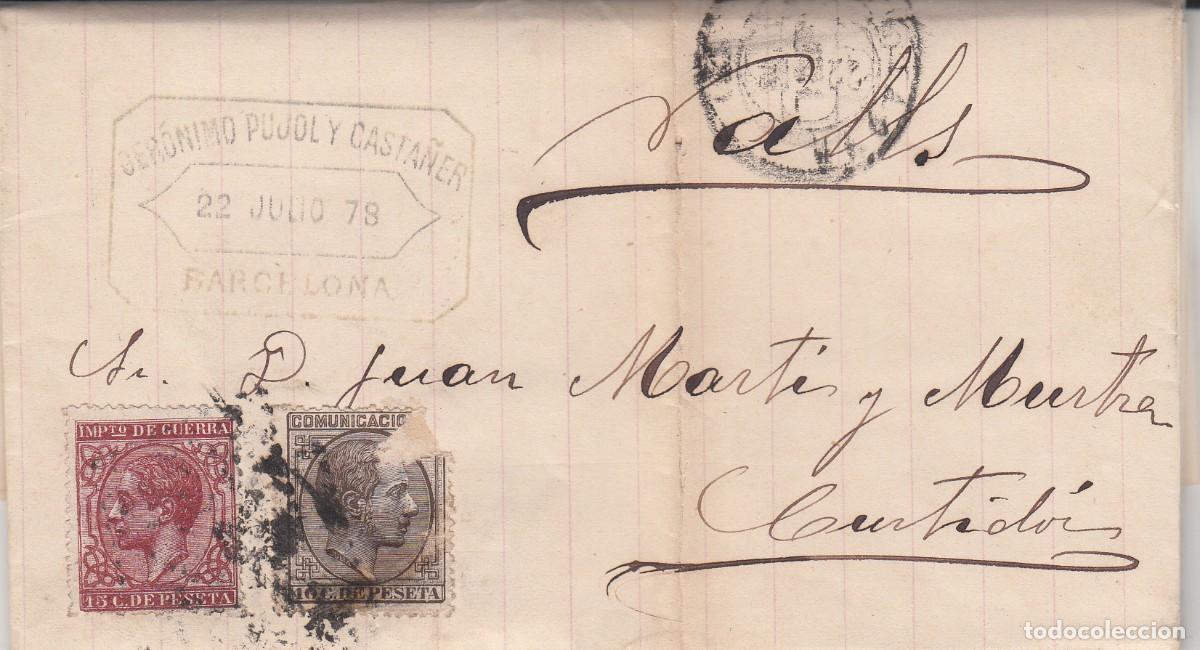 Valls
GERÓNIMO PUJOL Y CASTAÑER
22 JULIO 78
BARCELONA
Sr. D. Juan Martí y Murtra
Curtidór
IMPTO DE GUERRA
15 C. DE PESETA
COMUNICACIO
10 C. DE PESETA
todocoleccion